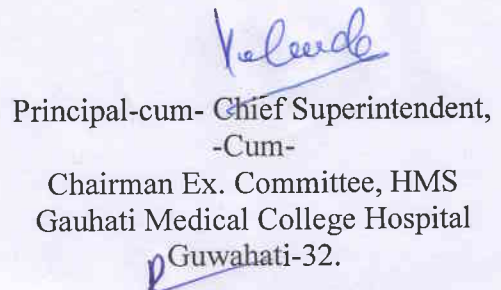 Principal-cum- Chief Superintendent,
-Cum-
Chairman Ex. Committee, HMS
Gauhati Medical College Hospital
Guwahati-32.